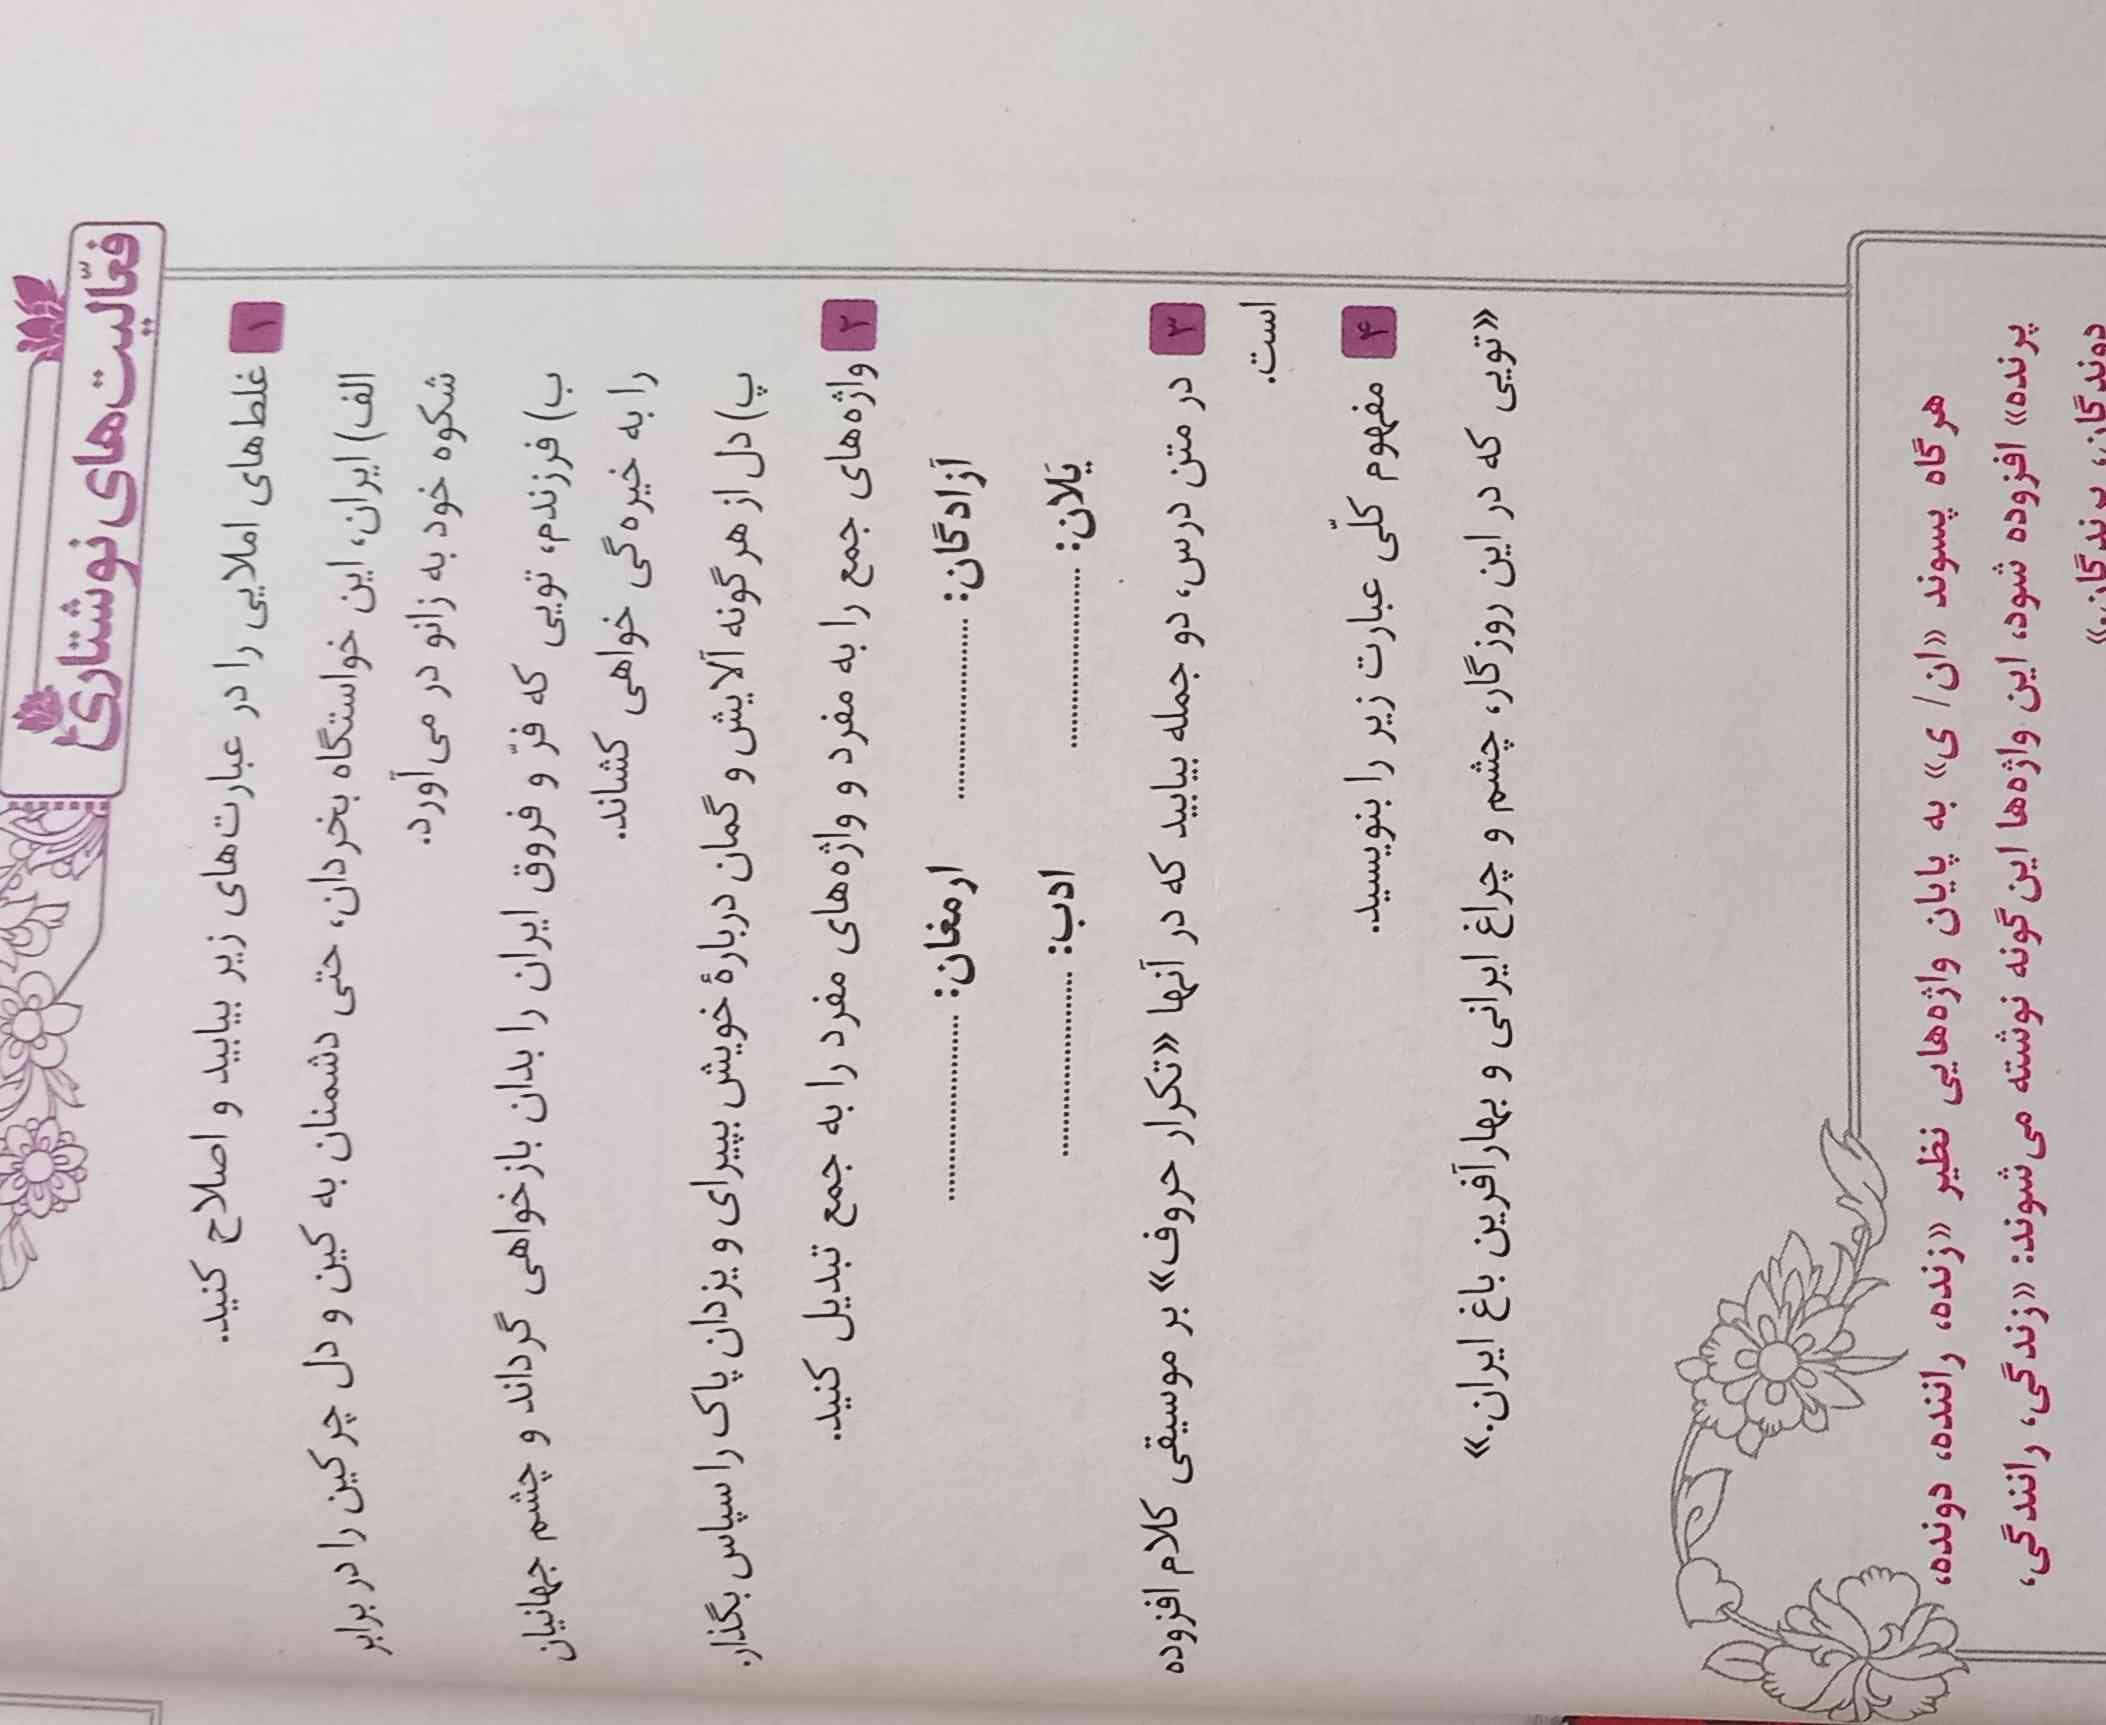 فعّالیت‌های نوشتاری
۱ غلط‌های املایی را در عبارت‌های زیر بیابید و اصلاح کنید.
الف) ایران، این خواستگاه بخردان، حتی دشمنان به کین و دل چرکین را در برابر
شکوه خود به زانو در می‌آورد.
ب) فرزندم، تویی که فرّ و فروق ایران را بدان بازخواهی گرداند و چشم جهانیان
را به خیره‌گی خواهی کشاند.
پ) دل از هرگونه آلایش و گمان دربارهٔ خویش بپیرای و یزدان پاک را سپاس بگذار.
۲ واژه‌های جمع را به مفرد و واژه‌های مفرد را به جمع تبدیل کنید.
آزادگان: .................... ارمغان: ....................
یَلان: .................... ادب: ....................
۳ در متن درس، دو جمله بیابید که در آنها «تکرار حروف» بر موسیقی کلام افزوده
است.
۴ مفهوم کلّی عبارت زیر را بنویسید.
«تویی که در این روزگار، چشم و چراغ ایرانی و بهارآفرین باغ ایران.»
هرگاه پسوند «ان/ ی» به پایان واژه‌هایی نظیر «زنده، راننده، دونده،
پرنده» افزوده شود، این واژه‌ها این‌گونه نوشته می‌شوند: «زندگی، رانندگی،
دوندگان، پرندگان.»